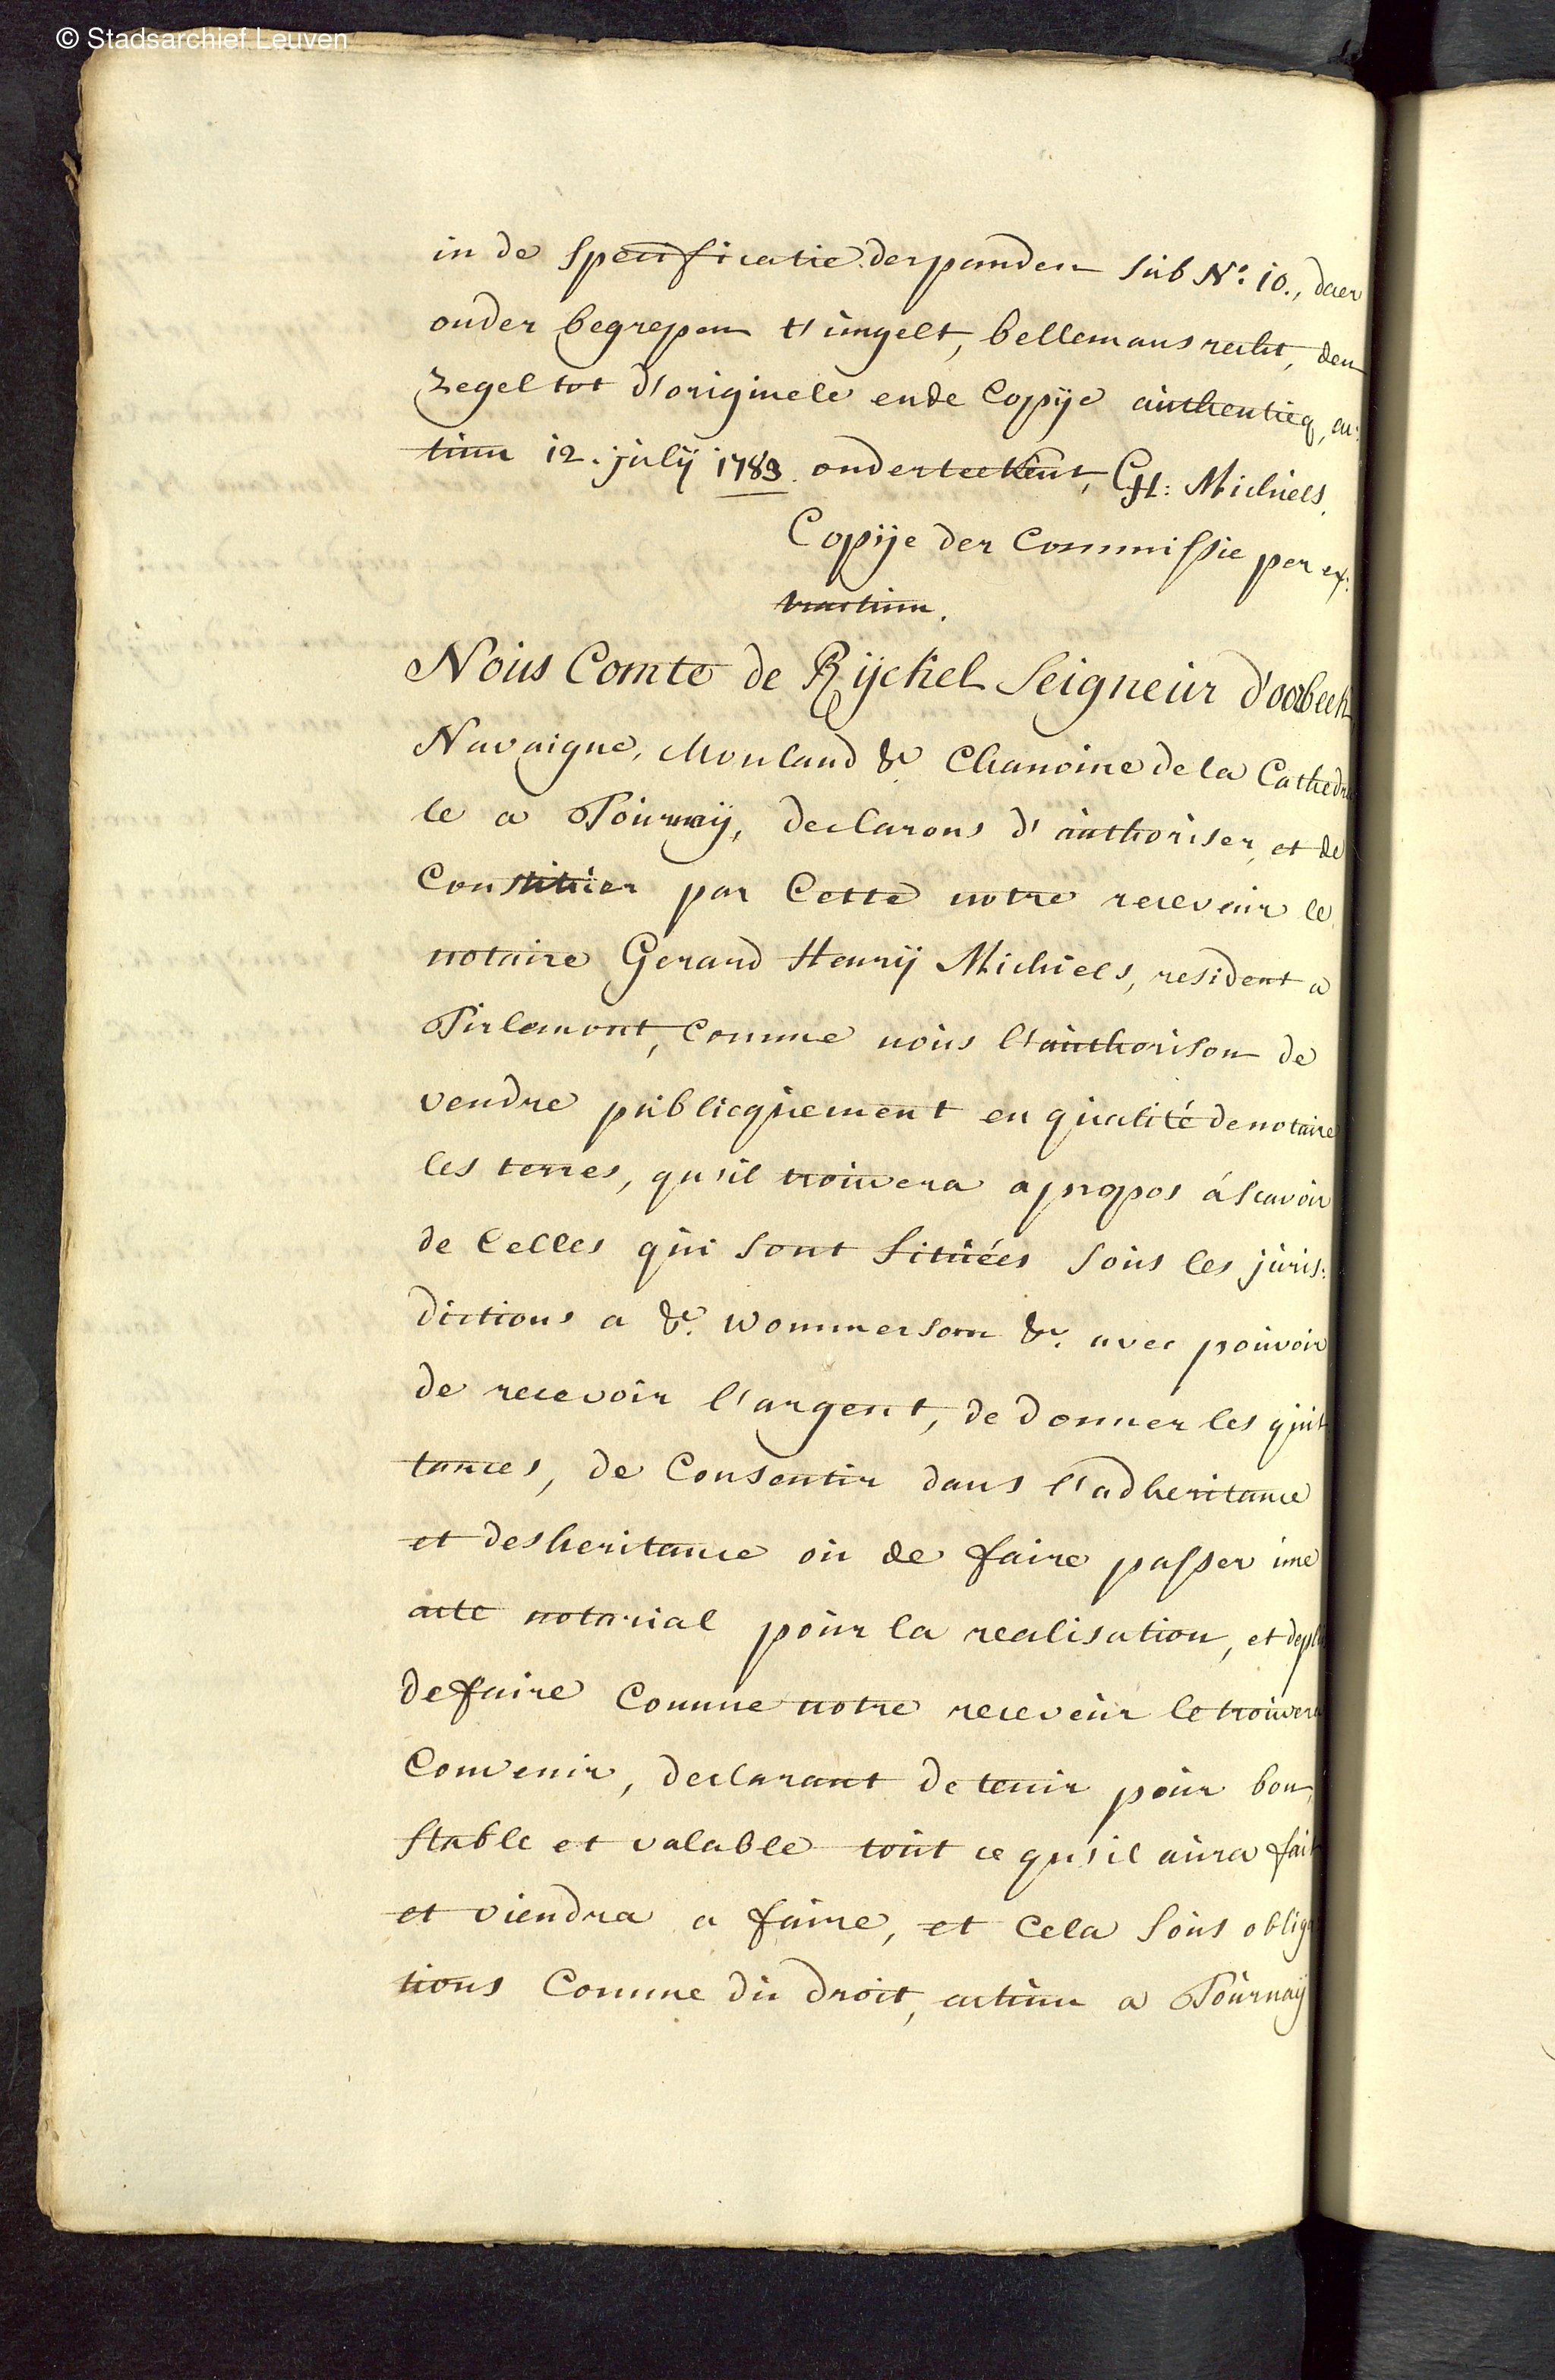 © Stadsarchief Leuven
in de specificatie der panden sub N.º 10., daer
onder begrepen t'ungelt, bellemans recht, den
zegel tot d'originele ende Copije authentieq, ac:
tum 12. julij 1789. onderteekent, GH: Michiels.
Copije der Commissie per ex:
tractum.
Nous Comte de Rijckel Seigneur d'oorbeek
Navaigne, Mouland &c Chanoine de la Cathedra
le a Tournaij, declarons d'authoriser, et de
Constituer par Cette notre receveur le
notaire Gerard Henrij Michiels, resident a
Tirlemont, Comme nous l'authorison de
vendre publicquement en qualité de notaire
les terres, qu'il trouvera a propos á scavoir
de Celles qui sont situées sous les juris:
dictions a &c. Wommersom &c. avec pouvoir
de recevoir l'argent, de donner les quit
tances, de Consentir dans l'adheritance
et desheritance ou de faire passer une
acte notarial pour la realisation, et de plus
de faire Comme notre receveur le trouvera
Convenir, declarant de tenir pour bon,
stable et valable tout ce qu'il aura fait
et viendra a faire, et Cela sous obliga
tions Comme du droit, actum a Tournaij